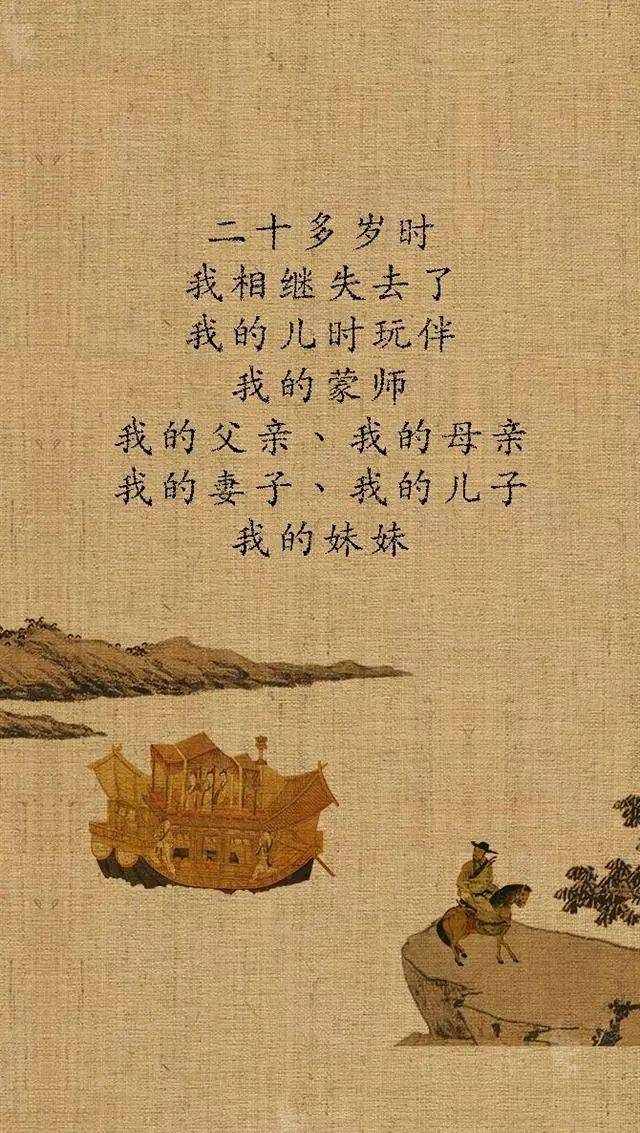 二十多岁时
我相继失去了
我的儿时玩伴
我的蒙师
我的父亲、我的母亲
我的妻子、我的儿子
我的妹妹